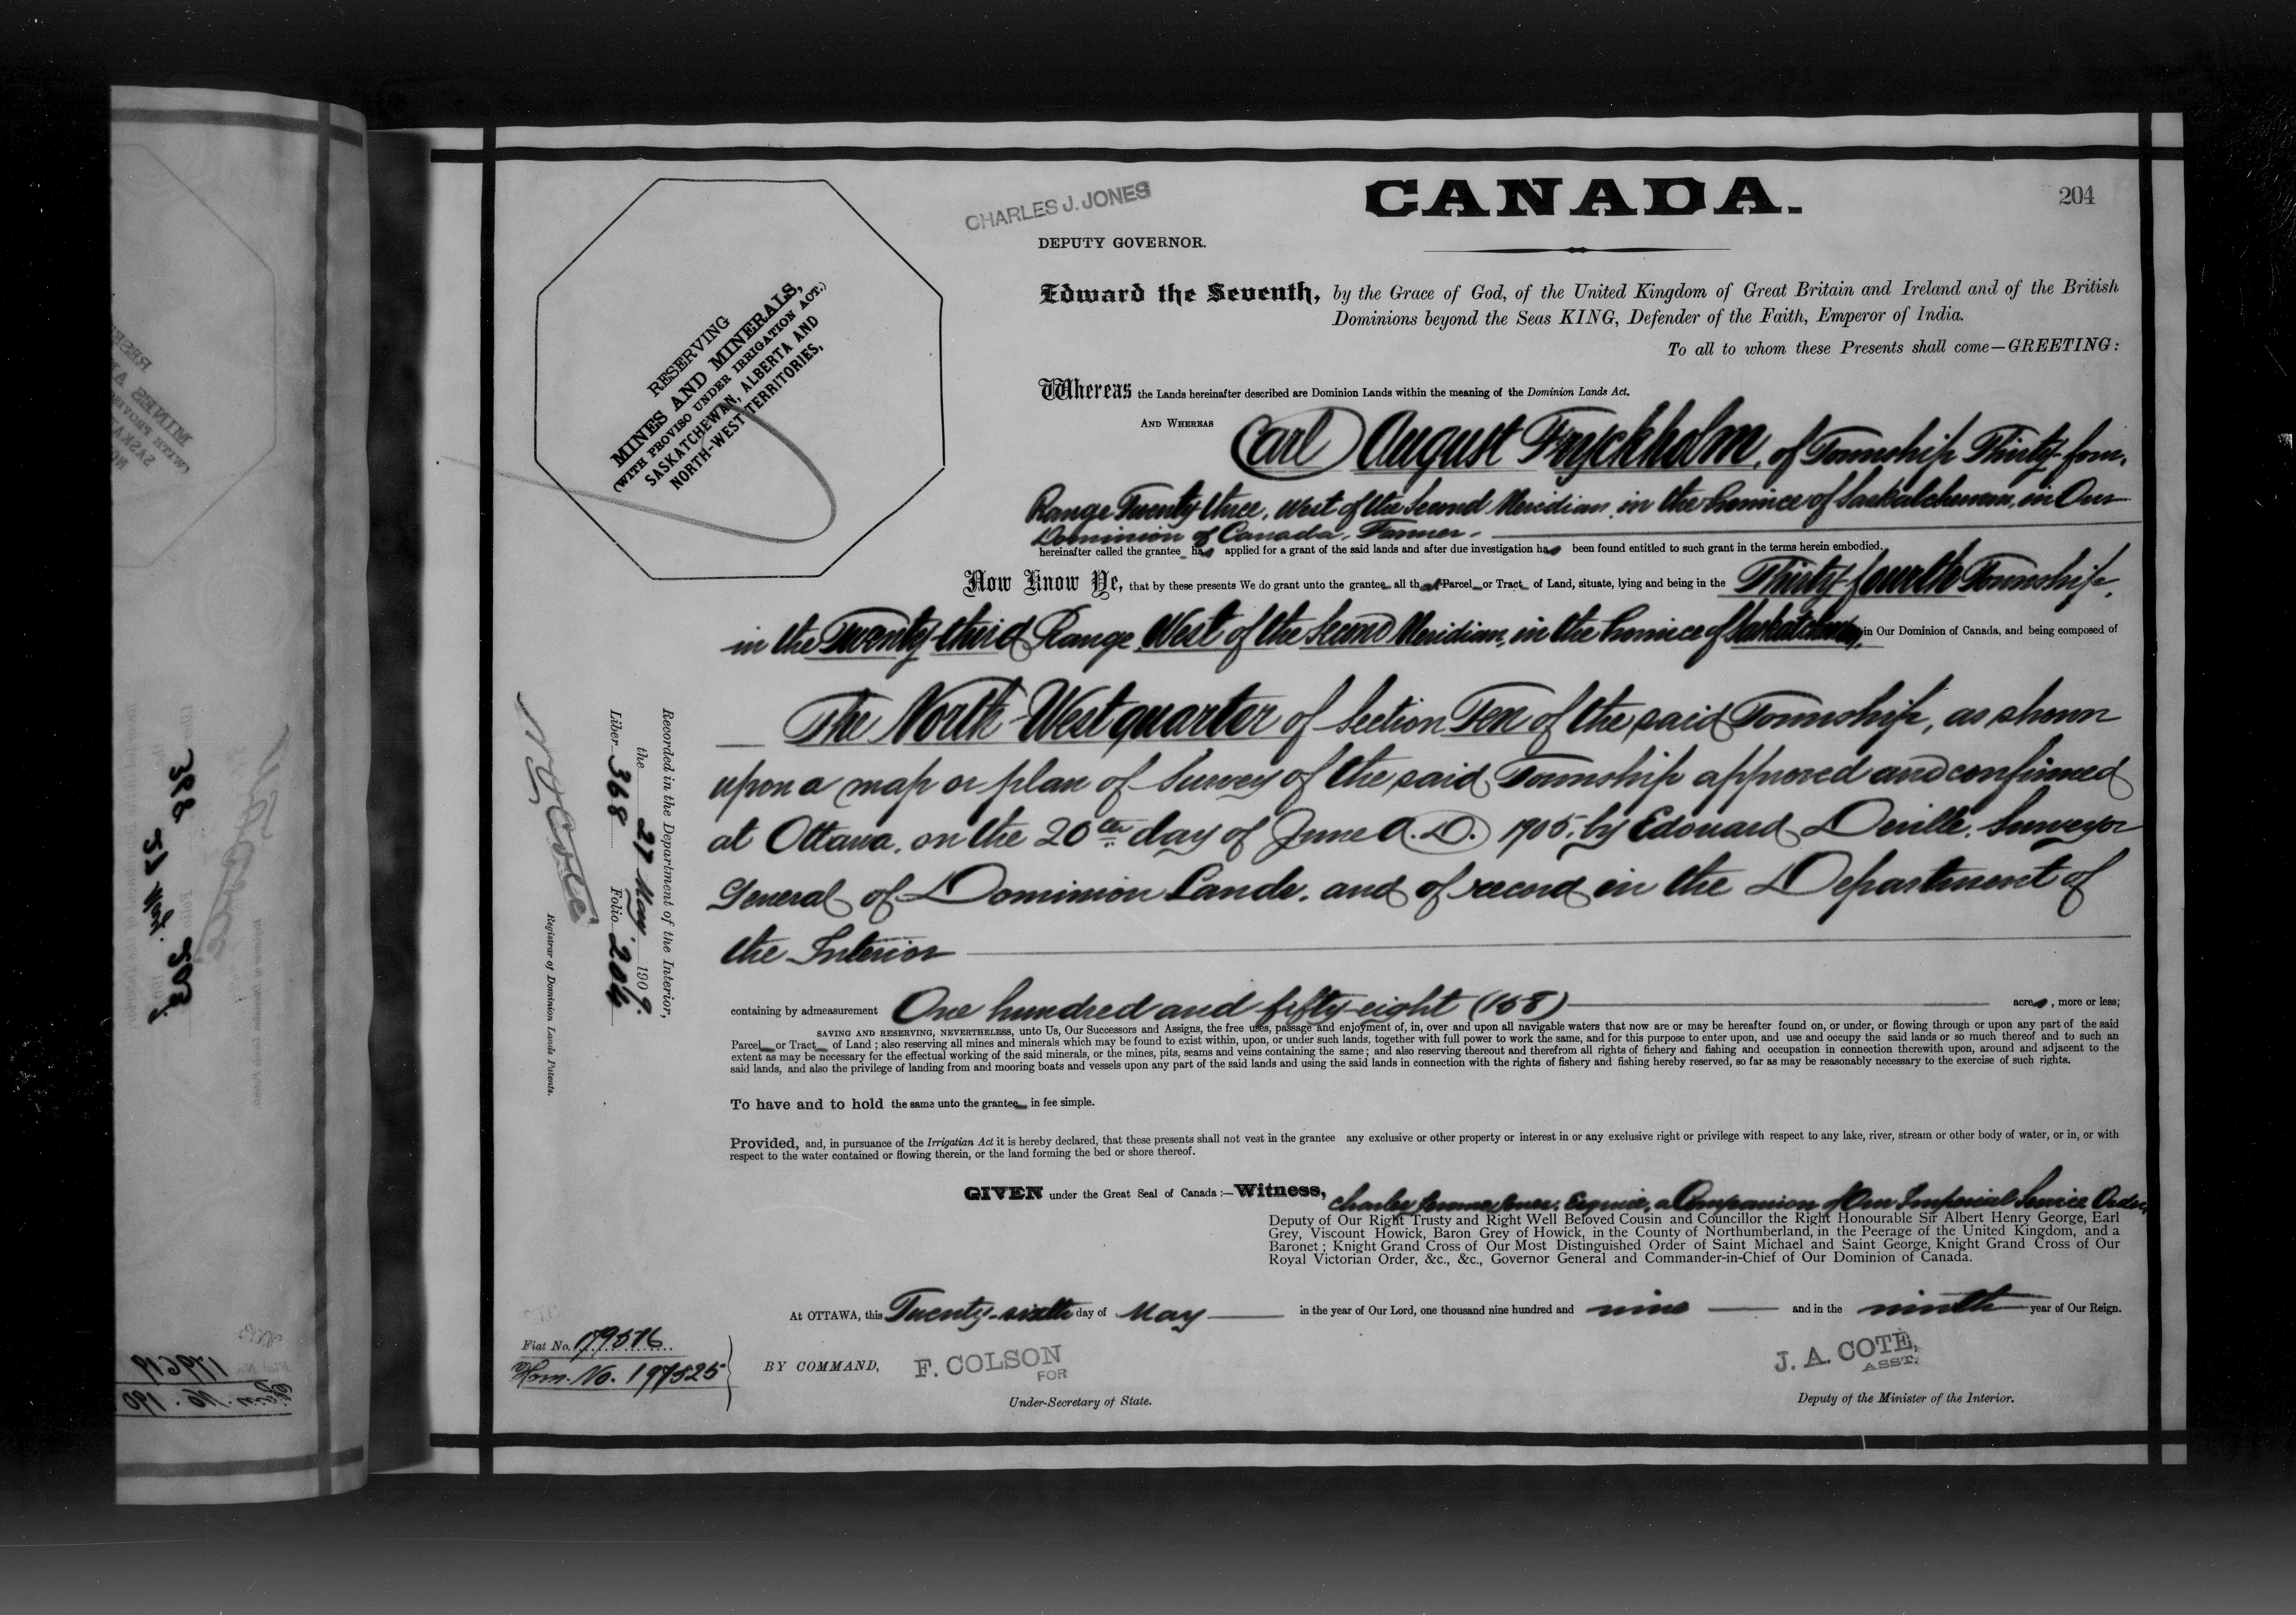 CANADA.
204
CHARLES J. JONES
DEPUTY GOVERNOR.
RESERVING
MINES AND MINERALS,
(WITH PROVISO UNDER IRRIGATION ACT.)
SASKATCHEWAN, ALBERTA AND
NORTH-WEST TERRITORIES,
Edward the Seventh, by the Grace of God, of the United Kingdom of Great Britain and Ireland and of the British
Dominions beyond the Seas KING, Defender of the Faith, Emperor of India.
To all to whom these Presents shall come—GREETING:
Whereas the Lands hereinafter described are Dominion Lands within the meaning of the Dominion Lands Act.
AND WHEREAS Carl August Fryckholm, of Township Thirty-four,
Range Twenty three, West of the Second Meridian, in the Province of Saskatchewan, in Our
Dominion of Canada, Farmer.
hereinafter called the grantee has applied for a grant of the said lands and after due investigation has been found entitled to such grant in the terms herein embodied.
Now Know Ye, that by these presents We do grant unto the grantee all that Parcel or Tract of Land, situate, lying and being in the Thirty-fourth Township,
in the Twenty-third Range, West of the Second Meridian, in the Province of Saskatchewan, in Our Dominion of Canada, and being composed of
The North-West quarter of Section Ten of the said Township, as shown
upon a map or plan of Survey of the said Township approved and confirmed
at Ottawa, on the 20th day of June A.D. 1905, by Edouard Deville, Surveyor
General of Dominion Lands, and of record in the Department of
the Interior
containing by admeasurement One hundred and fifty-eight (158) acres, more or less;
SAVING AND RESERVING, NEVERTHELESS, unto Us, Our Successors and Assigns, the free uses, passage and enjoyment of, in, over and upon all navigable waters that now are or may be hereafter found on, or under, or flowing through or upon any part of the said
Parcel or Tract of Land; also reserving all mines and minerals which may be found to exist within, upon, or under such lands, together with full power to work the same, and for this purpose to enter upon, and use and occupy the said lands or so much thereof and to such an
extent as may be necessary for the effectual working of the said minerals, or the mines, pits, seams and veins containing the same; and also reserving thereout and therefrom all rights of fishery and fishing and occupation in connection therewith upon, around and adjacent to the
said lands, and also the privilege of landing from and mooring boats and vessels upon any part of the said lands and using the said lands in connection with the rights of fishery and fishing hereby reserved, so far as may be reasonably necessary to the exercise of such rights.
To have and to hold the same unto the grantee in fee simple.
Provided, and, in pursuance of the Irrigatian Act it is hereby declared, that these presents shall not vest in the grantee any exclusive or other property or interest in or any exclusive right or privilege with respect to any lake, river, stream or other body of water, or in, or with
respect to the water contained or flowing therein, or the land forming the bed or shore thereof.
GIVEN under the Great Seal of Canada:—Witness, Charles Jerome Jones, Esquire, a Companion of Our Imperial Service Order,
Deputy of Our Right Trusty and Right Well Beloved Cousin and Councillor the Right Honourable Sir Albert Henry George, Earl
Grey, Viscount Howick, Baron Grey of Howick, in the County of Northumberland, in the Peerage of the United Kingdom, and a
Baronet; Knight Grand Cross of Our Most Distinguished Order of Saint Michael and Saint George, Knight Grand Cross of Our
Royal Victorian Order, &c., &c., Governor General and Commander-in-Chief of Our Dominion of Canada.
At OTTAWA, this Twenty-sixth day of May in the year of Our Lord, one thousand nine hundred and nine and in the ninth year of Our Reign.
Fiat No. 179516
Hom. No. 197525
BY COMMAND,
F. COLSON
FOR
Under-Secretary of State.
J. A. COTE,
ASST.
Deputy of the Minister of the Interior.
Recorded in the Department of the Interior,
the 27 May, 1909.
Liber 368 Folio 204
N O Coté
Registrar of Dominion Lands Patents.